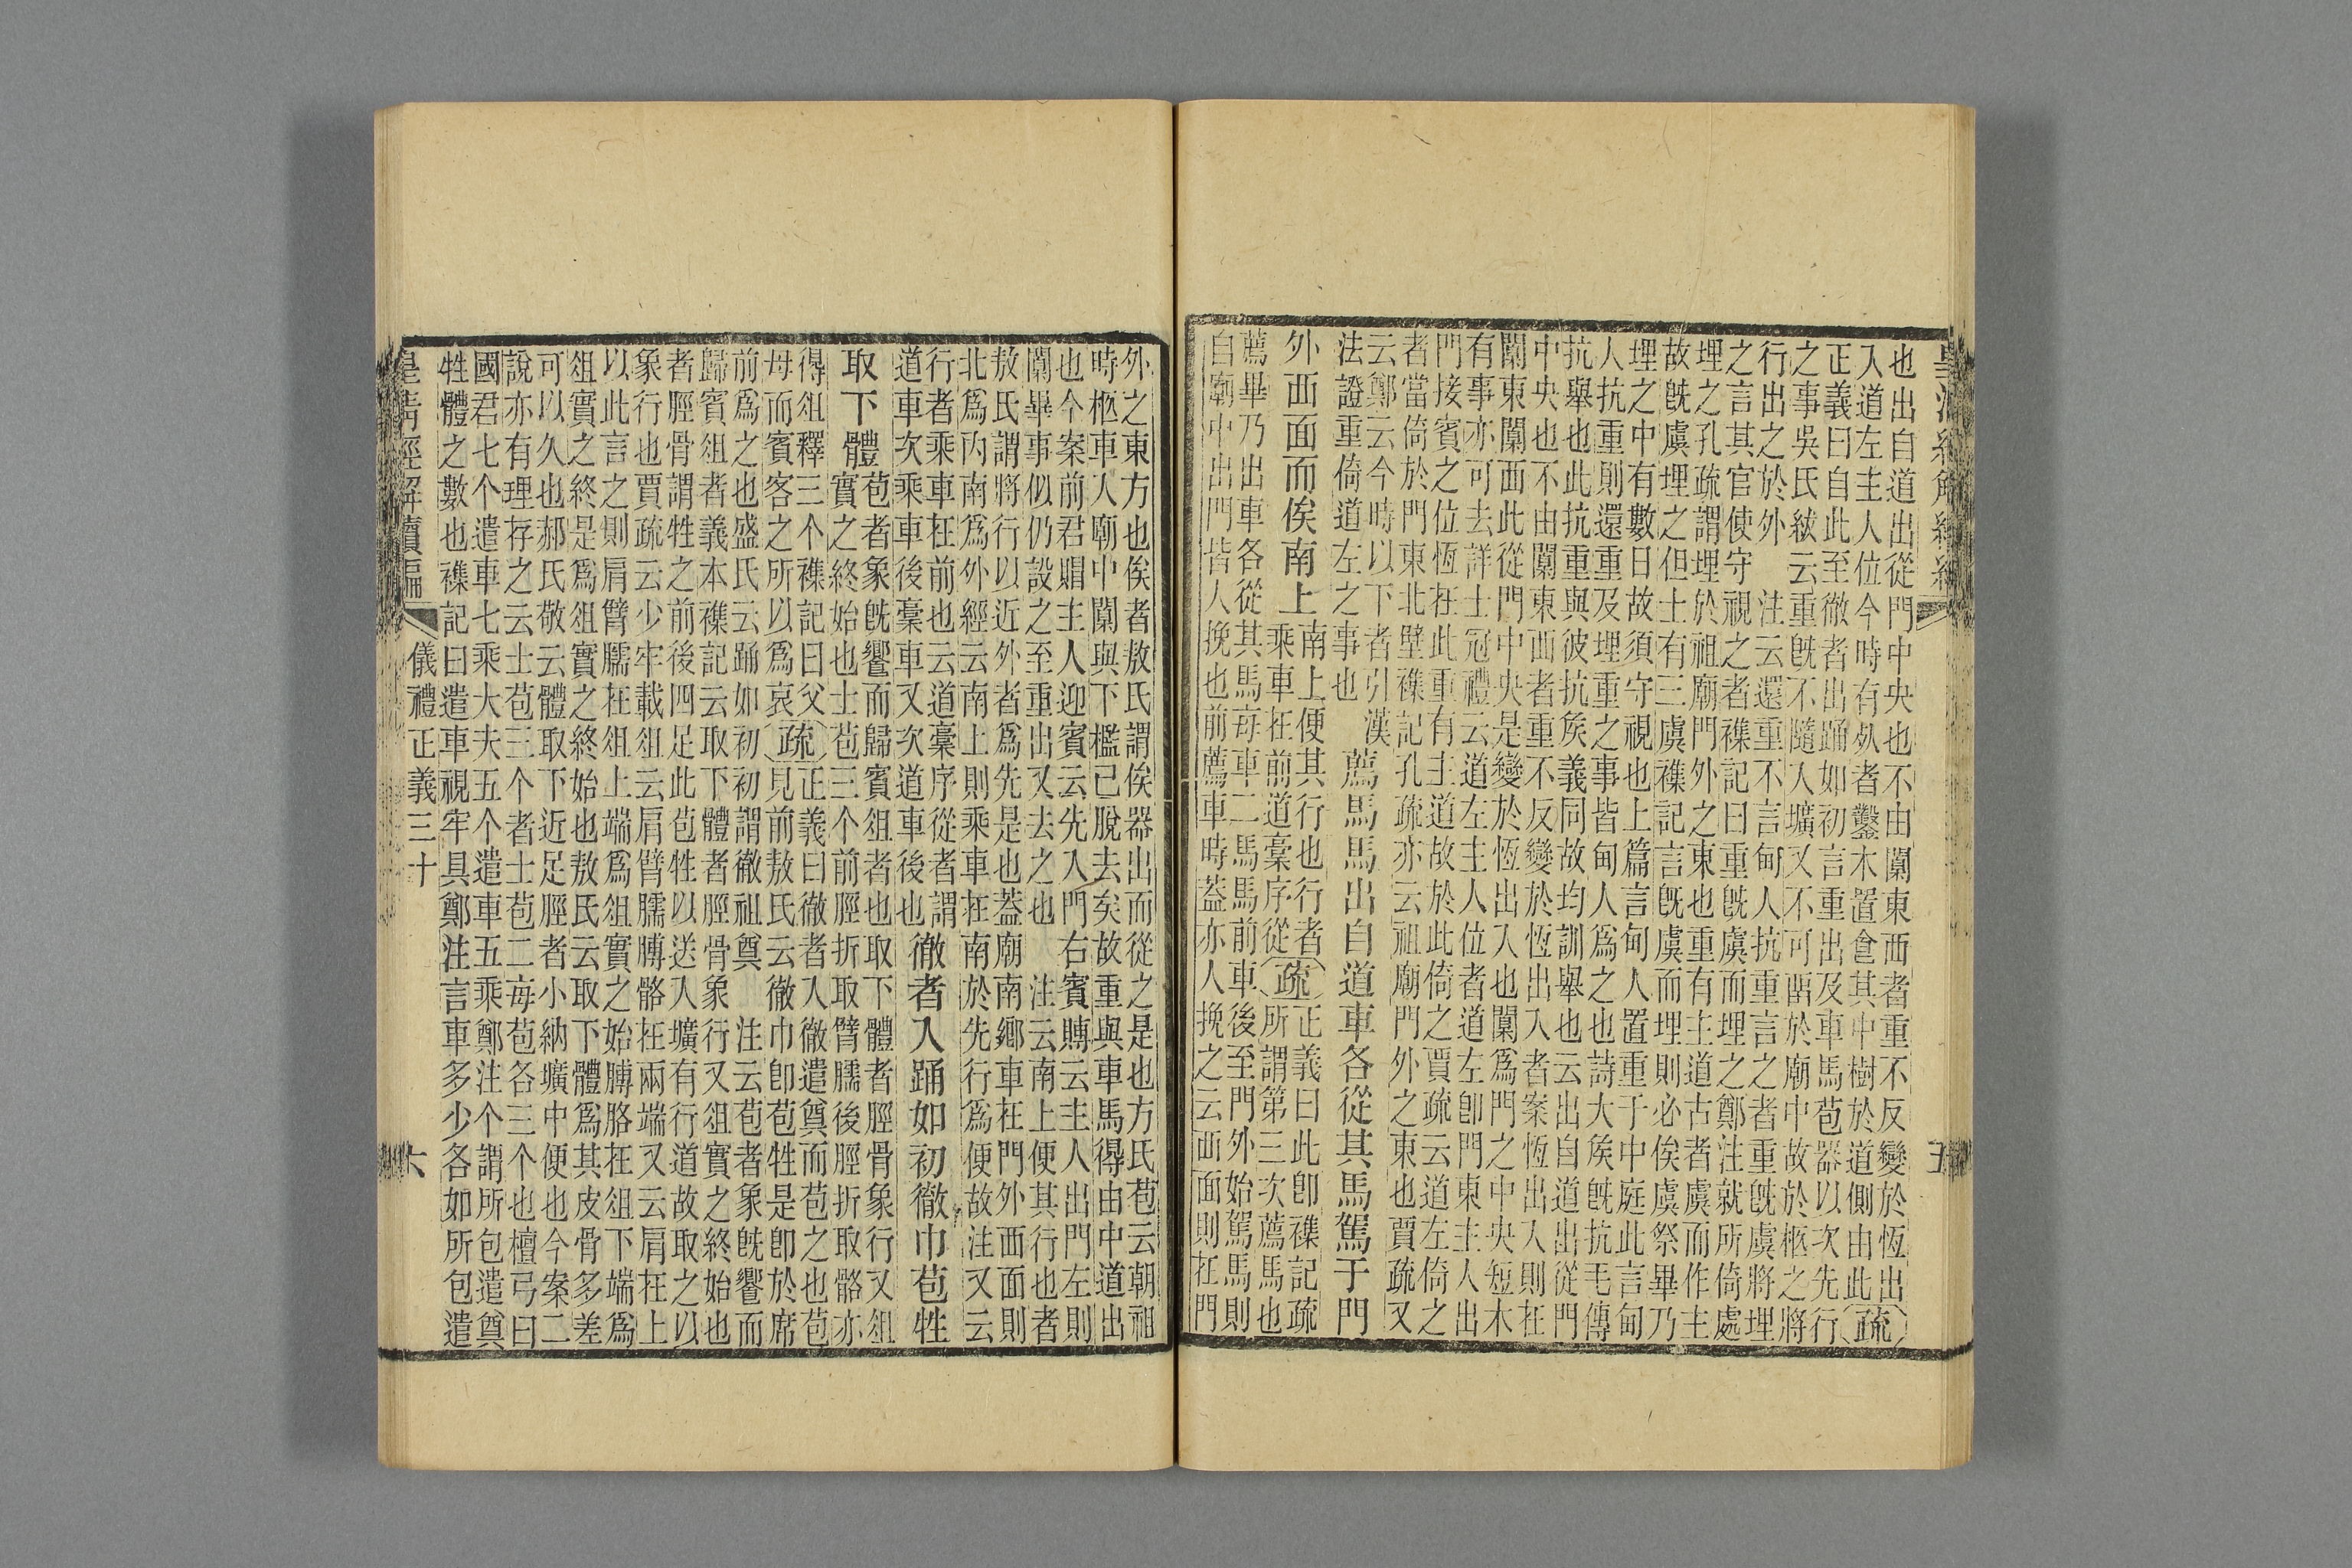 皇清經解續編
也出自道出從門中央也不由闑東西者重不反變於恆出
入道左主人位今時有死者鑿木置食其中樹於道側由此疏
正義曰自此至徹者出踊如初言重出及車馬苞器以次先行
之事吳氏紱云重旣不隨人壙又不可留於廟中故於柩之將
行出之於外　注云還重不言甸人抗重言之者重旣虞將埋
之言其官使守視之者襍記曰重旣虞而埋之鄭注就所倚處
埋之孔疏謂埋於祖廟門外之東也重有主道古者虞而作主
故旣虞埋之但士有三虞襍記言旣虞而埋則必俟虞祭畢乃
埋之中有數日故須守視也上篇言甸人置重于中庭此言甸
人抗重則還重及埋重之事皆甸人爲之也詩大矦旣抗毛傳
抗舉也此抗重與彼抗矦義同故均訓舉也云出自道出從門
中央也不由闑東西者重不反變於恆出入者案恆出入則在
闑東闑西此從門中央是變於恆出入也闑爲門之中央短木
有事亦可去詳士冠禮云道左主人位者道左卽門東主人出
門接賓之位恆在此重有主道故於此倚之賈疏云道左倚之
者當倚於門東北壁襍記孔疏亦云祖廟門外之東也賈疏又
云鄭云今時以下者引漢
法證重倚道左之事也
薦馬馬出自道車各從其馬駕于門
外西面而俟南上
南上便其行也行者
乘車在前道稾序從疏
正義曰此卽襍記疏
所謂第三次薦馬也
薦畢乃出車各從其馬每車二馬馬前車後至門外始駕馬則
自廟中出門皆人挽也前薦車時蓋亦人挽之云西面則在門
五
外之東方也俟者敖氏謂俟器出而從之是也方氏苞云朝祖
時柩車入廟中闑與下檻已脫去矣故重與車馬得由中道出
也今案前君賵主人迎賓云先入門右賓賻云主人出門左則
闑畢事似仍設之至重出又去之也　注云南上便其行也者
敖氏謂將行以近外者爲先是也蓋廟南鄉車在門外西面則
北爲內南爲外經云南上則乘車在南於先行爲便故注又云
行者乘車在前也云道稾序從者謂
道車次乘車後稾車又次道車後也
徹者入踊如初徹巾苞牲
取下體
苞者象旣饗而歸賓俎者也取下體者脛骨象行又俎
實之終始也士苞三个前脛折取臂臑後脛折取骼亦
得俎釋三个襍記曰父
母而賓客之所以爲哀疏
正義曰徹者入徹遣奠而苞之也苞
見前敖氏云徹巾卽苞牲是卽於席
前爲之也盛氏云踊如初初謂徹祖奠　注云苞者象旣饗而
歸賓俎者義本襍記云取下體者脛骨象行又俎實之終始也
者脛骨謂牲之前後四足此苞牲以送入壙有行道故取之以
象行也賈疏云少牢載俎云肩臂臑膊骼在兩端又云肩在上
以此言之則肩臂臑在俎上端爲俎實之始膊胳在俎下端爲
俎實之終是爲俎實之終始也敖氏云取下體爲其皮骨多差
可以久也郝氏敬云體取下近足脛者小納壙中便也今案二
說亦有理存之云士苞三个者士苞二每苞各三个也檀弓曰
國君七个遣車七乘大夫五个遣車五乘鄭注个謂所包遣奠
牲體之數也襍記曰遣車視牢具鄭注言車多少各如所包遣
皇清經解續編　儀禮正義三十　六